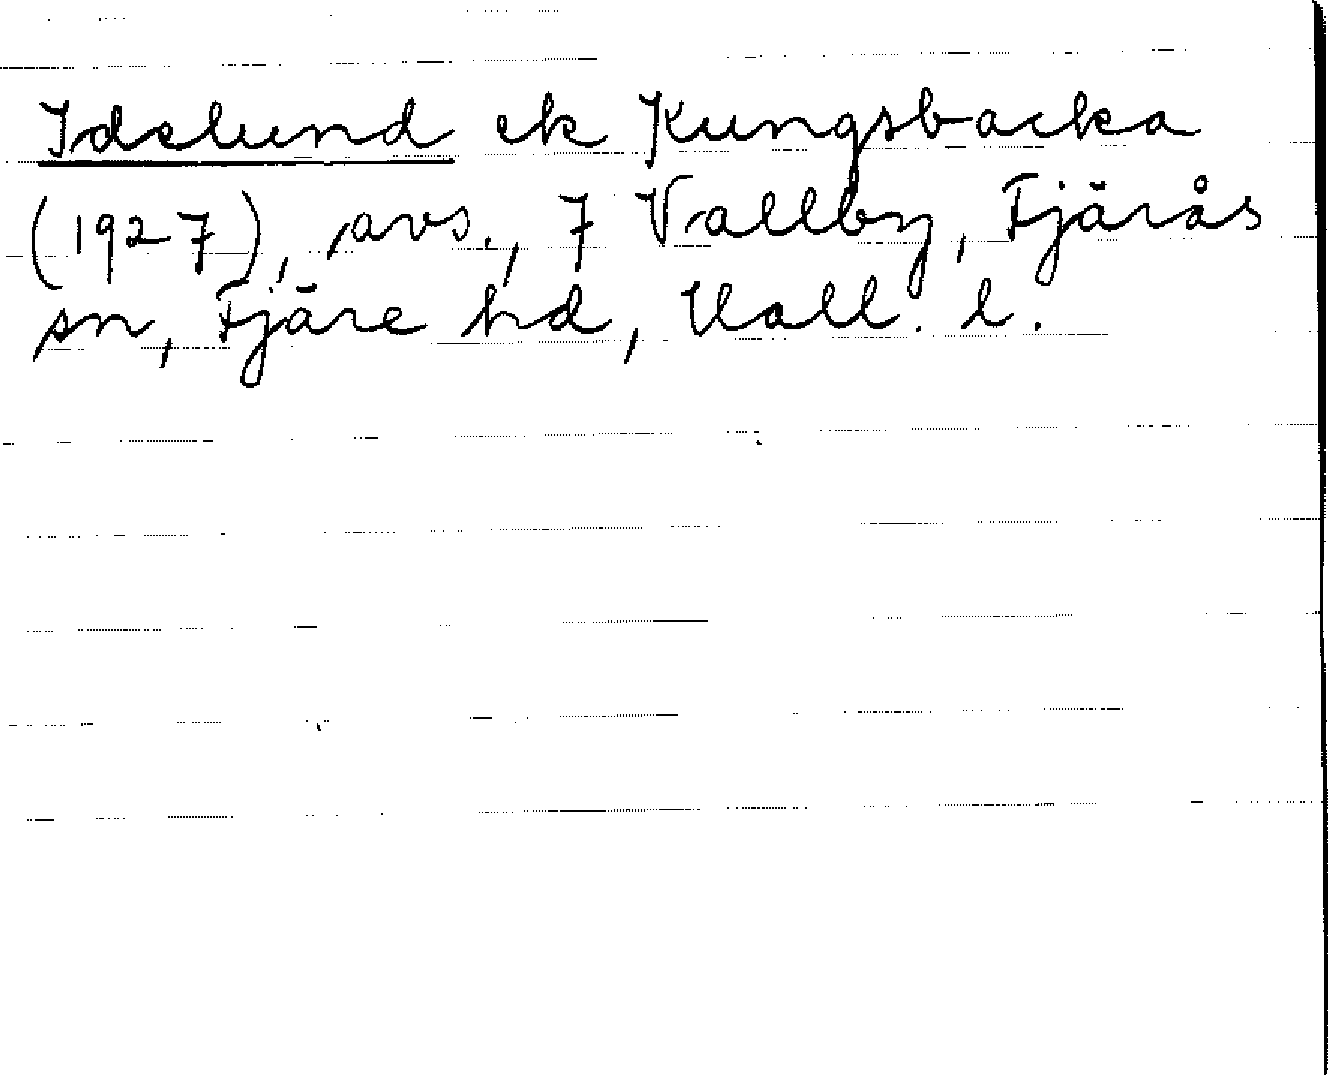 Idelund ek Kungsbacka
(1927), avs., 7 Vallby, Fjärås
sn, Fjäre hd, Hall. l.